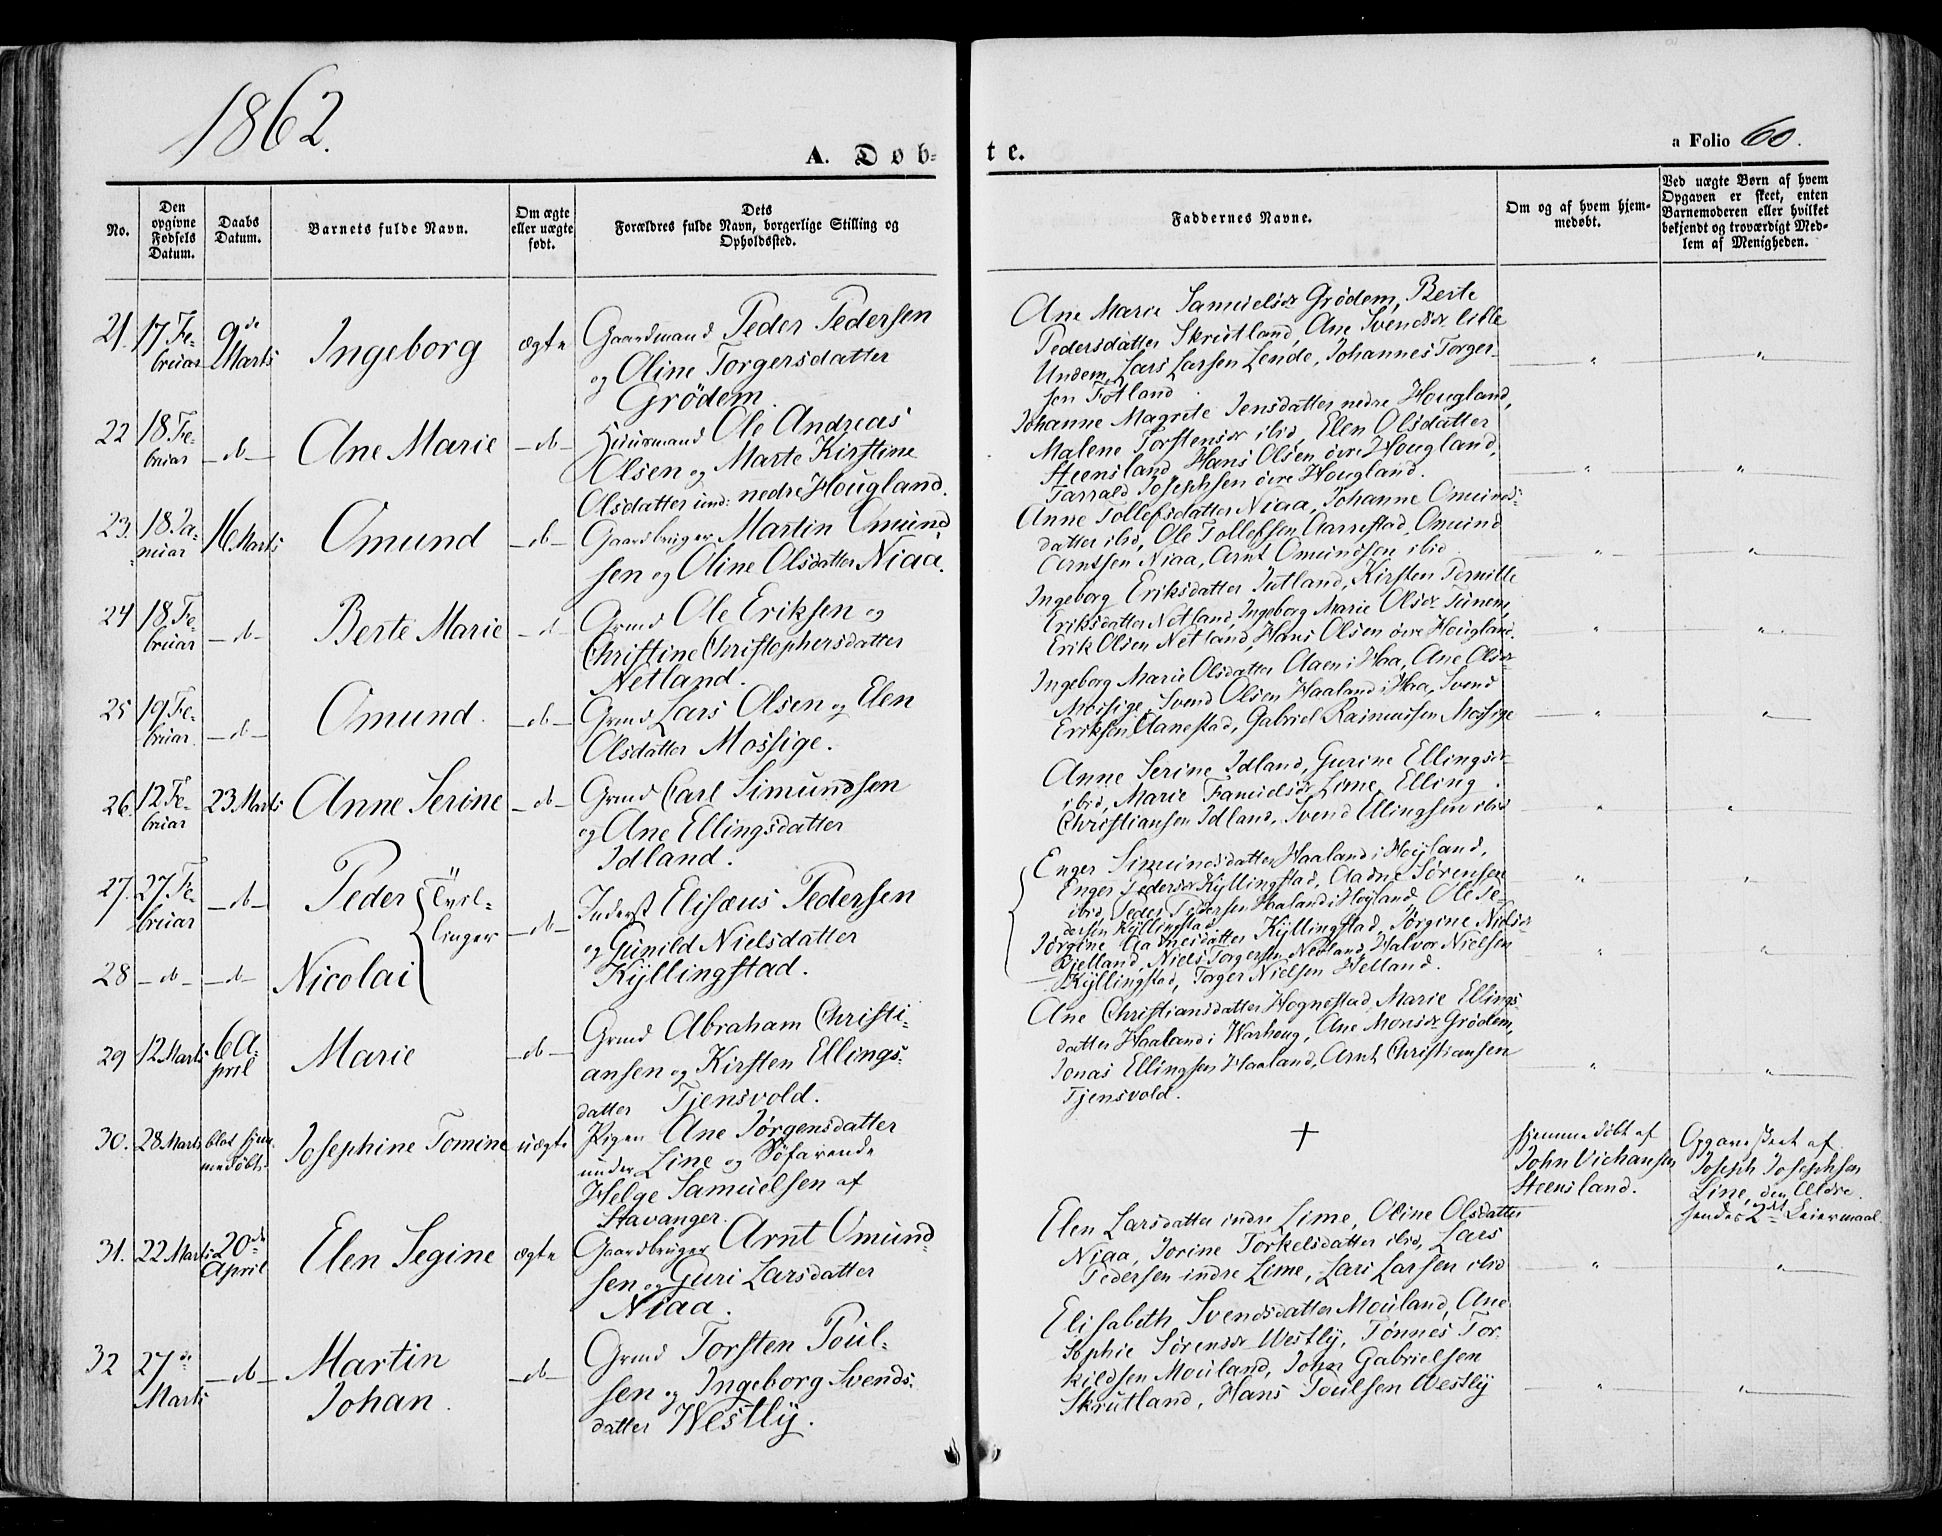 1862.
A. Døb-
te.
a Folio 60.
No.
Den
opgivne
Fødsels
Datum.
Daabs
Datum.
Barnets fulde Navn.
Om ægte
eller uægte
født.
Dets
Forældres fulde Navn, borgerlige Stilling og
Opholdssted.
Faddernes Navne.
Om og af hvem hjem-
medøbt.
Ved uægte Børn af hvem
Opgaven er skeet, enten
Barnemoderen eller hvilket
bekjendt og troværdigt Med-
lem af Menigheden.
21. 17 Fe-
bruar
9de
Marts
Ingeborg
ægte
Gaardmand Peder Pedersen
og Oline Torgersdatter
Grödem.
Ane Marie Samuelsdr Grödem, Berte
Pedersdatter Skrutland, Ane Svendsdr lille
Undem, Lars Larsen Lende, Johannes Torger-
sen Fotland
22 18 Fe-
bruar
-do-
Ane Marie
-do-
Huusmand Ole Andreas
Olsen og Marte Kirstine
Olsdatter und: nedre Hougland.
Johanne Magrete Jensdatter nedre Hougland,
Malene Torstensdr ibid, Elen Olsdatter
Steensland, Hans Olsen övre Hougland,
Tarrald Josephsen övre Hougland.
23. 18 Ja-
nuar
16 Marts
Omund
-do-
Gaardbruger Martin Omund
sen og Oline Olsdatter Niaa.
Anne Tollefsdatter Niaa, Johanne Omunds-
datter ibid, Ole Tollefsen Aarrestad, Omund
Arntsen Niaa, Arnt Omundsen ibid
24 18 Fe-
bruar
-do-
Berte Marie
-d-
Grmd Ole Eriksen og
Christine Christophersdatter
Netland.
Ingeborg Eriksdatter Jutland, Kirsten Pernille
Eriksdatter Netland, Ingeborg Marie Olsdr Tunem,
Erik Olsen Netland, Hans Olsen övre Hougland.
25 19 Fe-
bruar
-do-
Omund.
-do-
Grmd Lars Olsen og Elen
Olsdatter Mossige.
Ingeborg Marie Olsdatter Aaen i Haa, Ane Olsdr
Mossige, Svend Olsen Haaland i Haa, Svend
Eriksen Aanestad, Gabriel Rasmussen Mossige
26. 12 Fe-
bruar
23 Marts
Anne Serine
-do-
Grmd Carl Simundsen
og Ane Ellingsdatter
Idland.
Anne Serine Idland, Gurine Ellingsdr
ibid, Marie Samuelsdr Lime, Elling
Christiansen Idland, Svend Ellingsen ibid
27. 27 Fe-
bruar
-do-
Peder
Tvil-
linger
-do-
Inderst Elisæus Pedersen
og Gunild Nielsdatter
Kÿllingstad.
Enger Simunsdatter Haaland i Höÿland,
Enger Pedersdr Kÿllingstad, Aadne Sörensen
ibid, Peder Pedersen Haaland i Höyland, Ole Pe-
dersen Kÿllingstad
28 -do- -do-
Nicolai
Jörgine Aadnesdatter Kÿllingstad, Jörgine Nielsdr
Bjelland, Niels Torgersen Netland, Halvor Nielsen
Kÿllingstad, Torger Nielsen Helland.
29 12 Marts
6 A-
pril
Marie
-do-
Grmd Abraham Christi-
ansen og Kirsten Ellings-
datter Tjensvold.
Ane Christiansdatter Hognestad, Marie Ellings
datter Haaland i Warhoug, Ane Monsdr Grödem,
Jonas Ellingsen Haaland, Arnt Christiansen
Tjensvold.
30. 28 Marts
blot hjem-
medöbt.
Josephine Tomine
uægte
Pigen Ane Jörgensdatter
under Line og Söfarende
Helge Samuelsen af
Stavanger.
+
hjemmedöbt af
John Vichansen
Steensland.
Opgave skeet af
Joseph Josephsen
Line, den Ældre.
hendes 2det Leiermaal.
31. 22 Marts
20de
April
Elen Segine
ægte
Gaardbruger Arnt Omund-
sen og Guri Larsdatter
Niaa.
Elen Larsdatter indre Lime, Oline Olsdatter
Niaa, Jorine Torkelsdatter ibid, Lars
Pedersen indre Lime, Lars Larsen ibid
32 27de
Marts
-do-
Martin
Johan.
-do-
Grmd Torsten Poul-
sen og Ingeborg Svends-
datter Westlÿ.
Elisabeth Svendsdatter Mouland, Ane
Sophie Sörensdr Westlÿ, Tönnes Tor-
kildsen Mouland, John Gabrielsen
Skrutland, Hans Poulsen Westlÿ